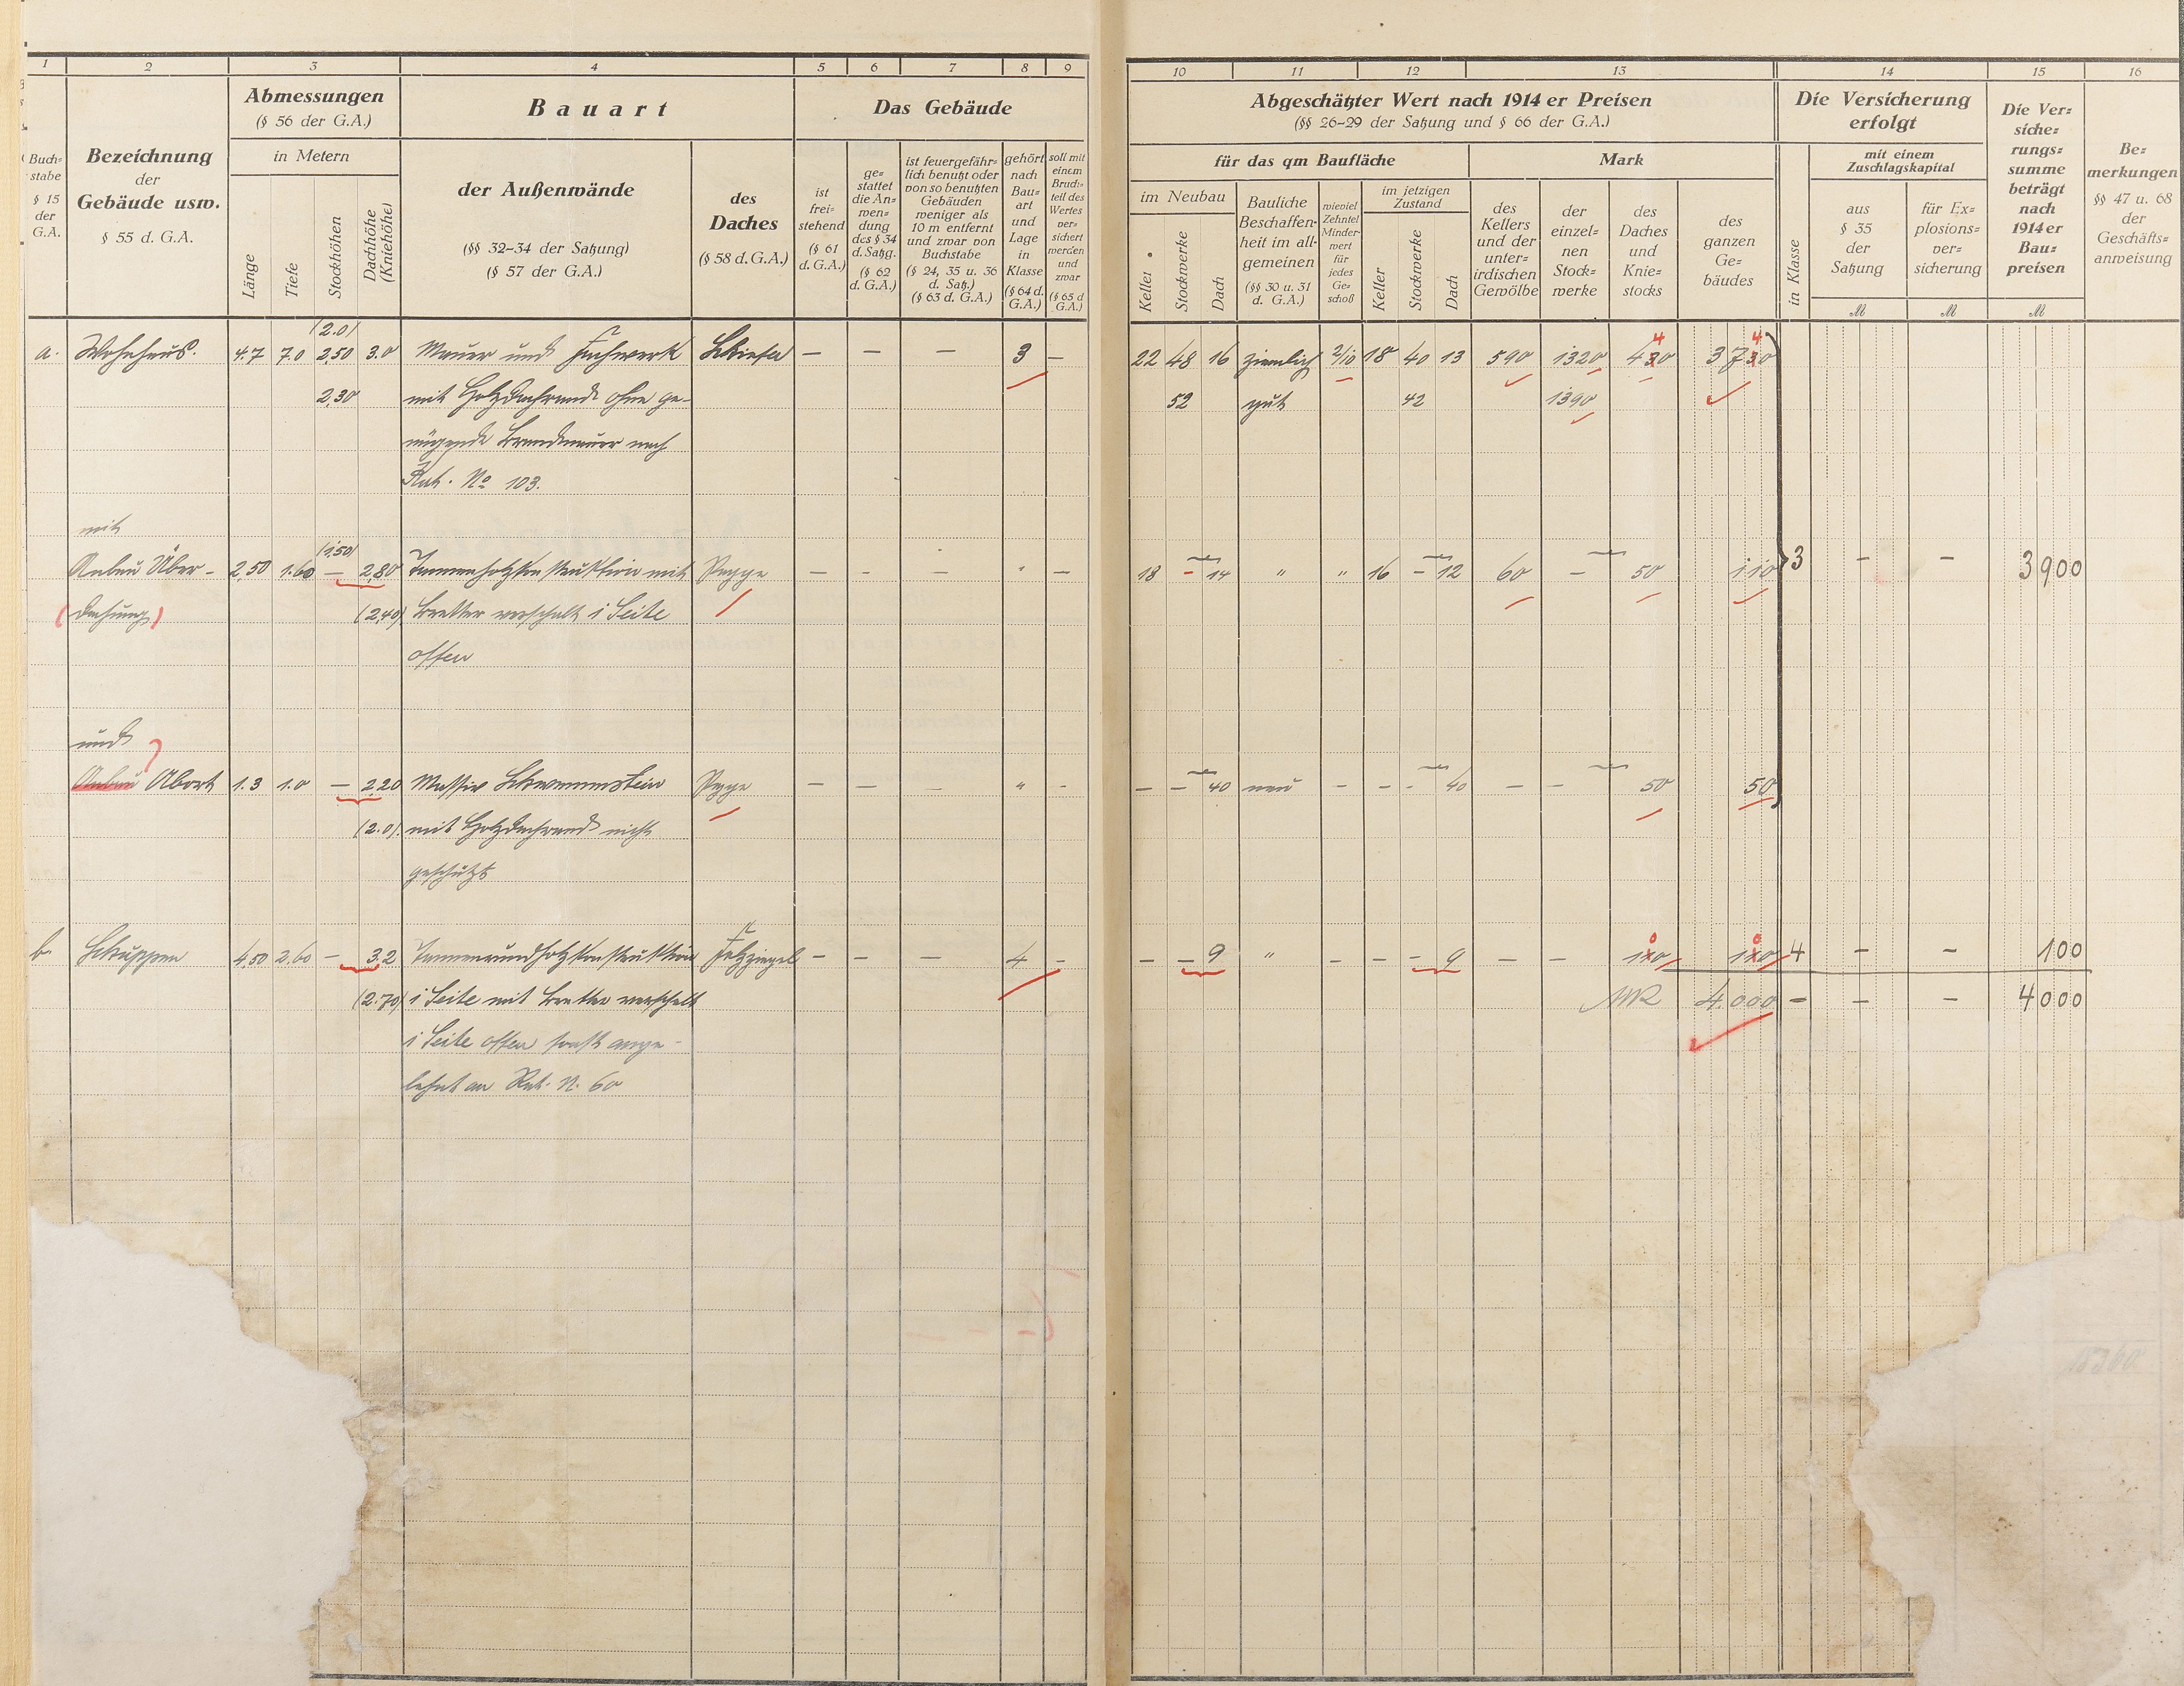 1 2 3 4 5 6 7 8 9 10 11 12 13 14 15 16
Buch=
stabe
§ 15
der
G.A.
Bezeichnung
der
Gebäude usw.
§ 55 d. G.A.
Abmessungen
(§ 56 der G.A.)
in Metern
Länge
Tiefe
Stockhöhen
Dachhöhe
(Kniehöhe)
Bauart
der Außenwände
(§§ 32-34 der Satzung)
(§ 57 der G.A.)
des
Daches
(§ 58 d. G.A.)
Das Gebäude
ist
frei=
stehend
(§ 61
d. G.A.)
ge=
stattet
die An=
wen=
dung
des § 34
d. Satzg.
(§ 62
d. G.A.)
ist feuergefähr=
lich benutzt oder
von so benutzten
Gebäuden
weniger als
10 m entfernt
und zwar von
Buchstabe
(§ 24, 35 u. 36
d. Satz.)
(§ 63 d. G.A.)
gehört
nach
Bau=
art
und
Lage
in
Klasse
(§ 64 d.
G.A.)
soll mit
einem
Bruch=
teil des
Wertes
ver=
sichert
werden
und
zwar
(§ 65 d
G.A.)
Abgeschätzter Wert nach 1914 er Preisen
(§§ 26-29 der Satzung und § 66 der G.A.)
für das qm Baufläche
Mark
im Neubau
Keller
Stockwerke
Dach
Bauliche
Beschaffen=
heit im all=
gemeinen
(§§ 30 u. 31
d. G.A.)
wieviel
Zehntel
Minder=
wert
für
jedes
Ge=
schoß
im jetzigen
Zustand
Keller
Stockwerke
Dach
des
Kellers
und der
unter=
irdischen
Gewölbe
der
einzel=
nen
Stock=
werke
des
Daches
und
Knie=
stocks
des
ganzen
Ge=
bäudes
Die Versicherung
erfolgt
in Klasse
mit einem
Zuschlagskapital
aus
§ 35
der
Satzung
für Ex=
plosions=
ver=
sicherung
Die Ver=
siche=
rungs=
summe
beträgt
nach
1914 er
Bau=
preisen
Be=
merkungen
§§ 47 u. 68
der
Geschäfts=
anweisung
M M M
(2.0)
a. Wohnhaus. 4.7 7.0 2,50 3.0 Mauer und Fachwerk Schiefer — — — 3 — 22 48 16 ziemlich 2/10 18 40 13 590 1320 4 4 0 37 4 0
2,30 mit Holzdachrand ohne ge- 52 gut 42 1390
nügende Brandmauer nach
Kat. No 103.
mit
(1,50)
Anbau Über- 2,50 1.60 — 2,80 Tannenholzkonstruktion mit Pappe — — — " — 18 - 14 " " 16 - 12 60 — 50 110 3 — — 3900
(dachung) (2,40) Bretter verschalt 1 Seite
offen
und
Anbau Abort 1.3 1.0 — 2,20 Massiv Schwemmstein Pappe — — — " - — — 40 neu — — - 40 — — 50 50
(2.0) mit Holzdachrand nicht
geschützt
b. Schuppen 4,50 2,60 — 3,2 Tannenrundholzkonstruktion Falzziegel — — — 4 - — — 9 " — — — 9 — — 100 100 4 — — 100
(2.70) 1 Seite mit Bretter verschalt 4.000 — — — 4000
1 Seite offen sonst ange-
lehnt an Kat. N. 60